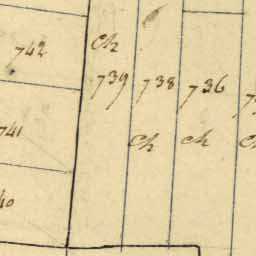 742 ch
739 738 736
ch ch
741